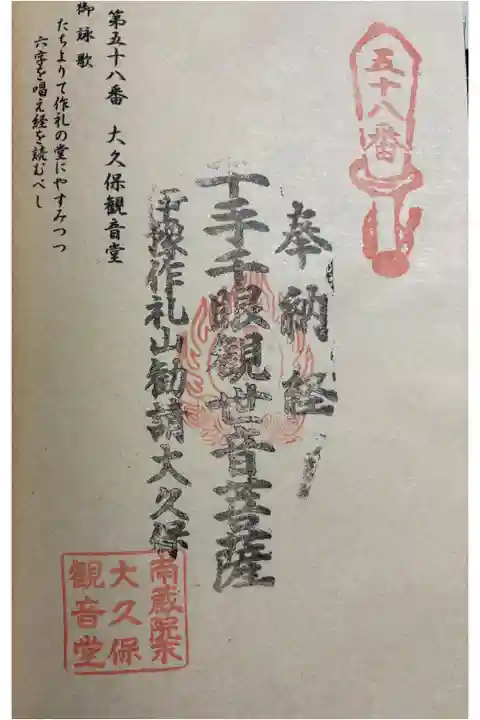 五十八番
奉納経
千手千眼観世音菩薩
作礼山勧請大久保
南蔵院末
大久保
観音堂
第五十八番 大久保観音堂
御詠歌
たちよりて作礼の堂にやすみつつ
六字を唱え経を読むべし